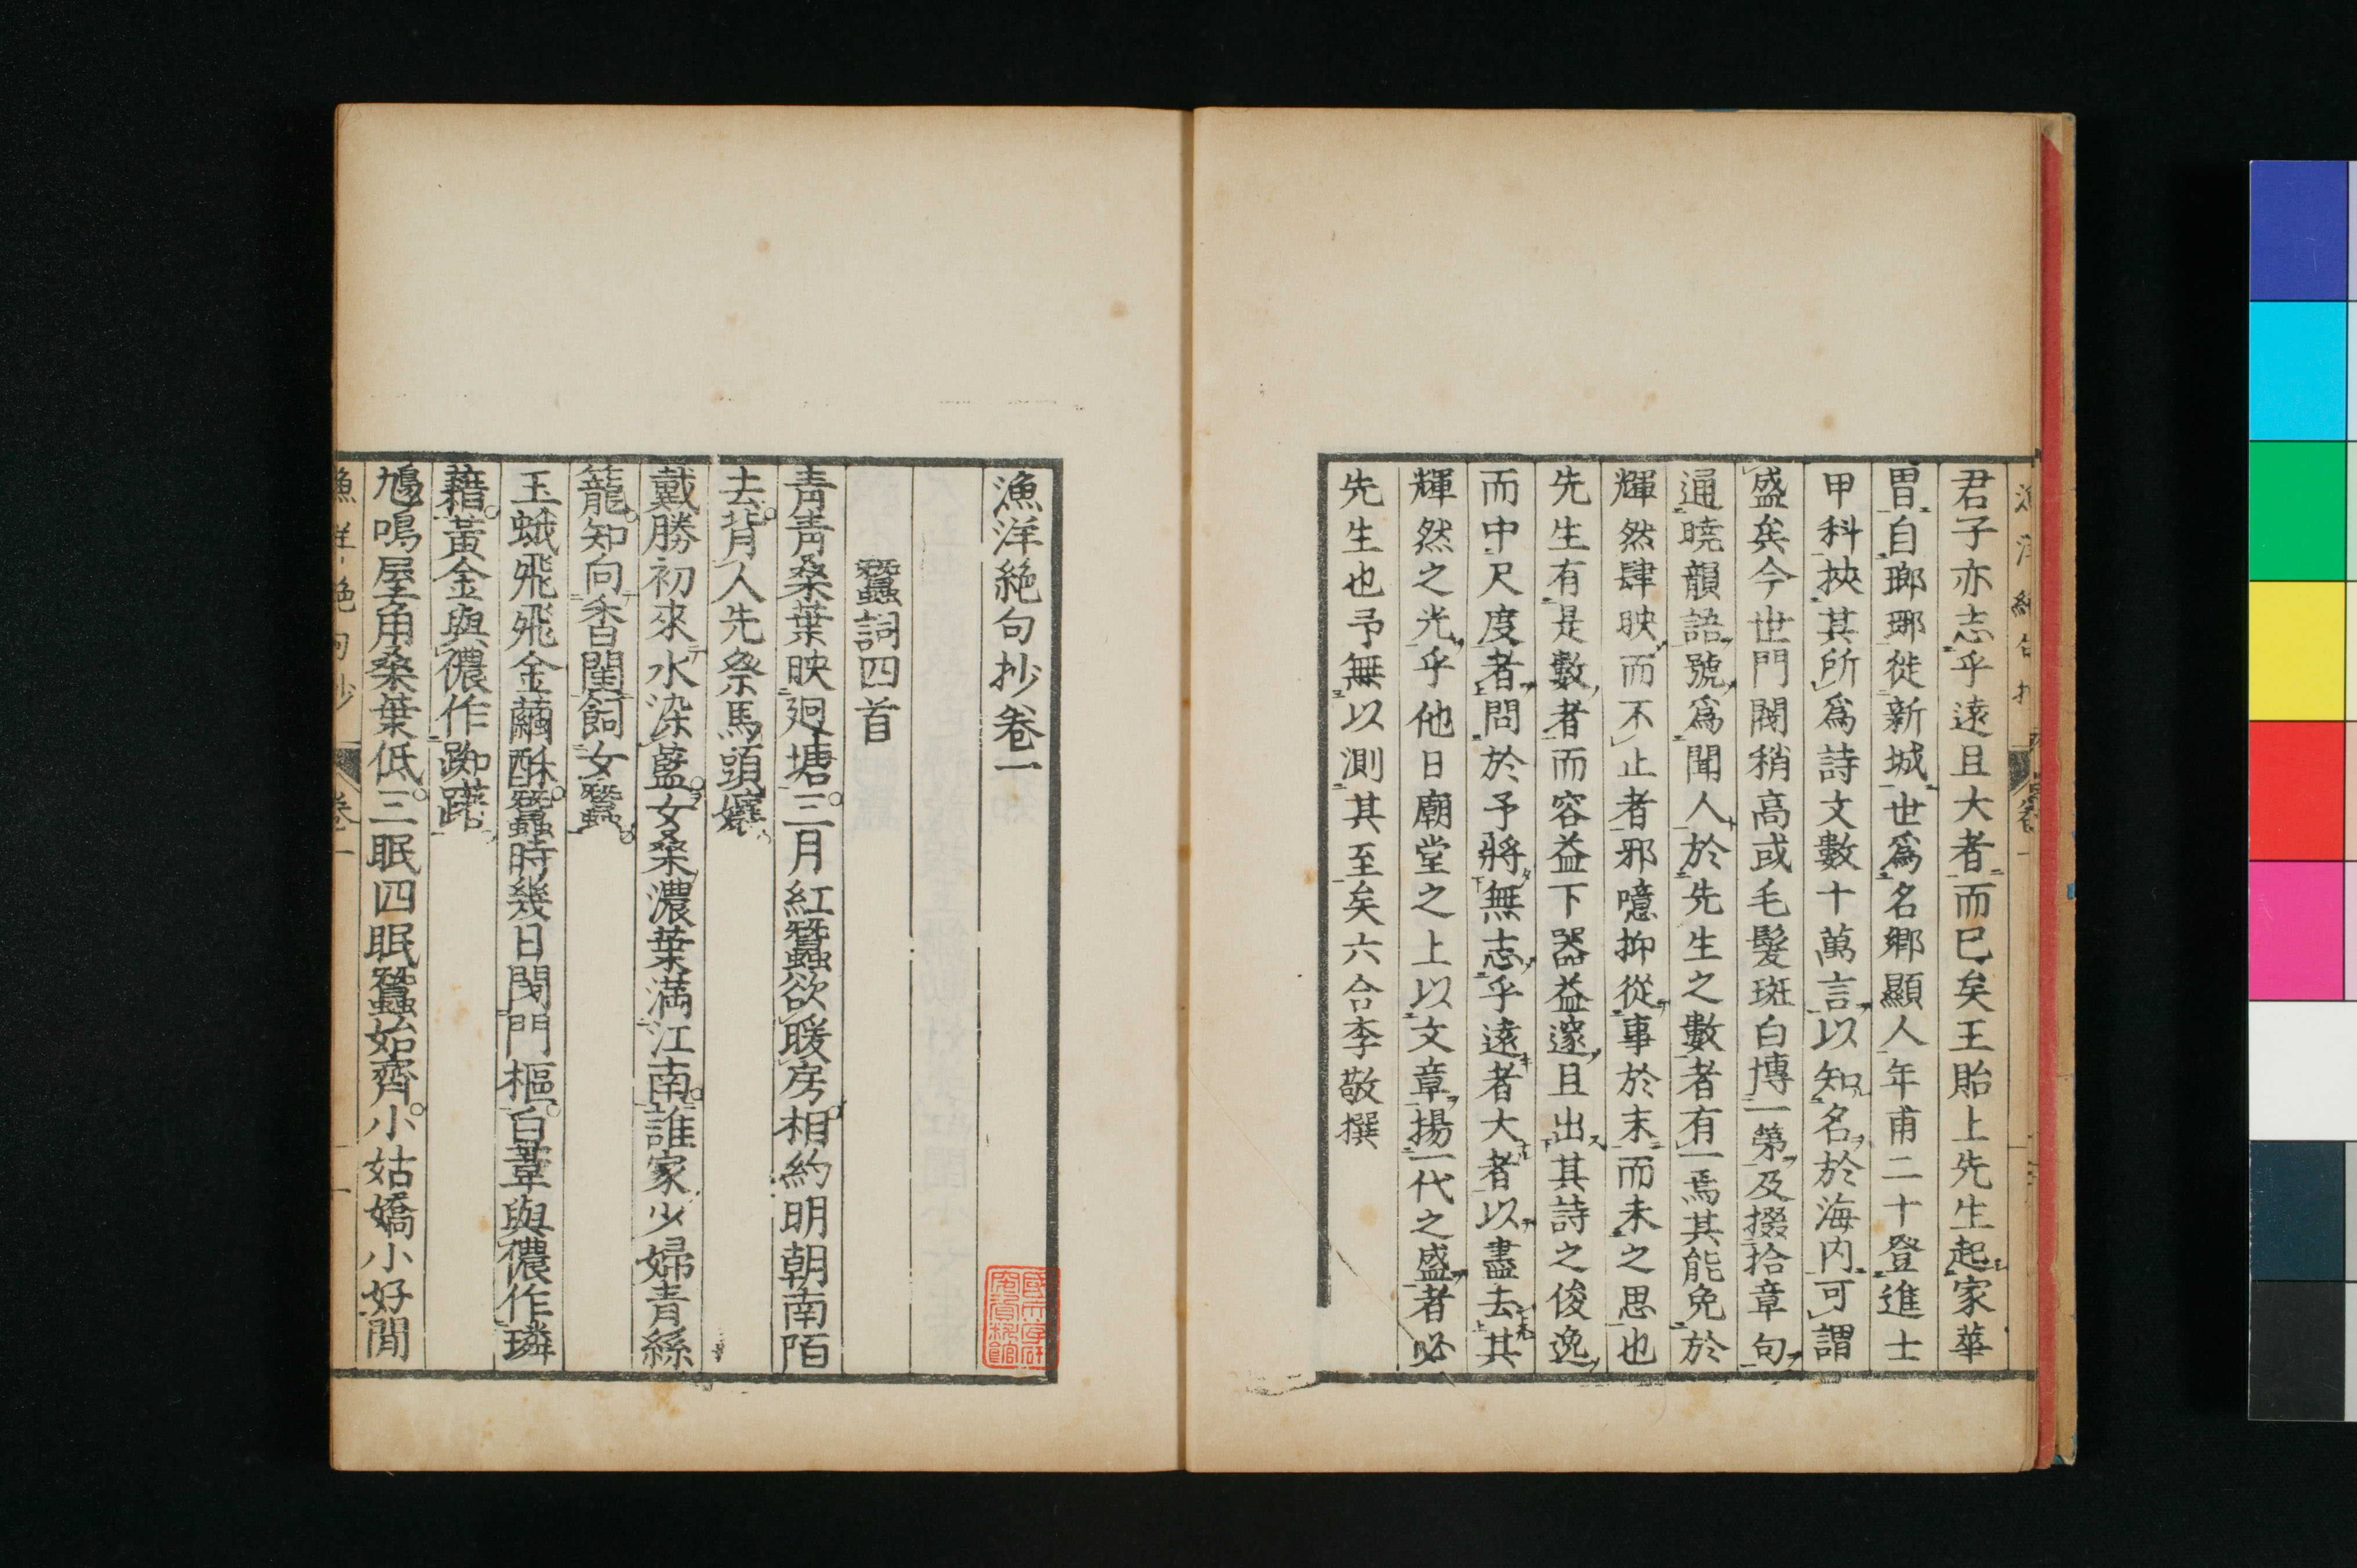 君子亦志乎遠且大者而已矣王貽上先生起家華
胄自瑯琊徙新城世爲名鄉顯人年甫二十登進士
甲科挾其所爲詩文數十萬言以知名於海内可謂
盛矣今世門閥稍高或毛髮斑白博一第及掇拾章句
通曉韻語號爲聞人於先生之數者有一焉其能免於
輝然肆映而不止者邪噫抑從事於末而未之思也
先生有是數者而容益下器益邃且出其詩之俊逸
而中尺度者問於予將無志乎遠者大者以盡去其
輝然之光乎他日廟堂之上以文章揚一代之盛者必
先生也予無以測其至矣六合李敬撰
漁洋絶句抄巻一
蠶詞四首
青青桑葉映廻塘三月紅蠶欲暖房相約明朝南陌
去背人先祭馬頭孃
戴勝初來水染藍女桑濃葉満江南誰家少婦青絲
籠知向香閨飼女蠶
玉蛾飛飛金繭酥蠶時幾日閉門樞白葦與儂作璘
藉黃金與儂作踟躇
鳩鳴屋角桑葉低三眠四眠蠶始齊小姑嬌小好閒
漁洋絶句抄 巻一 一